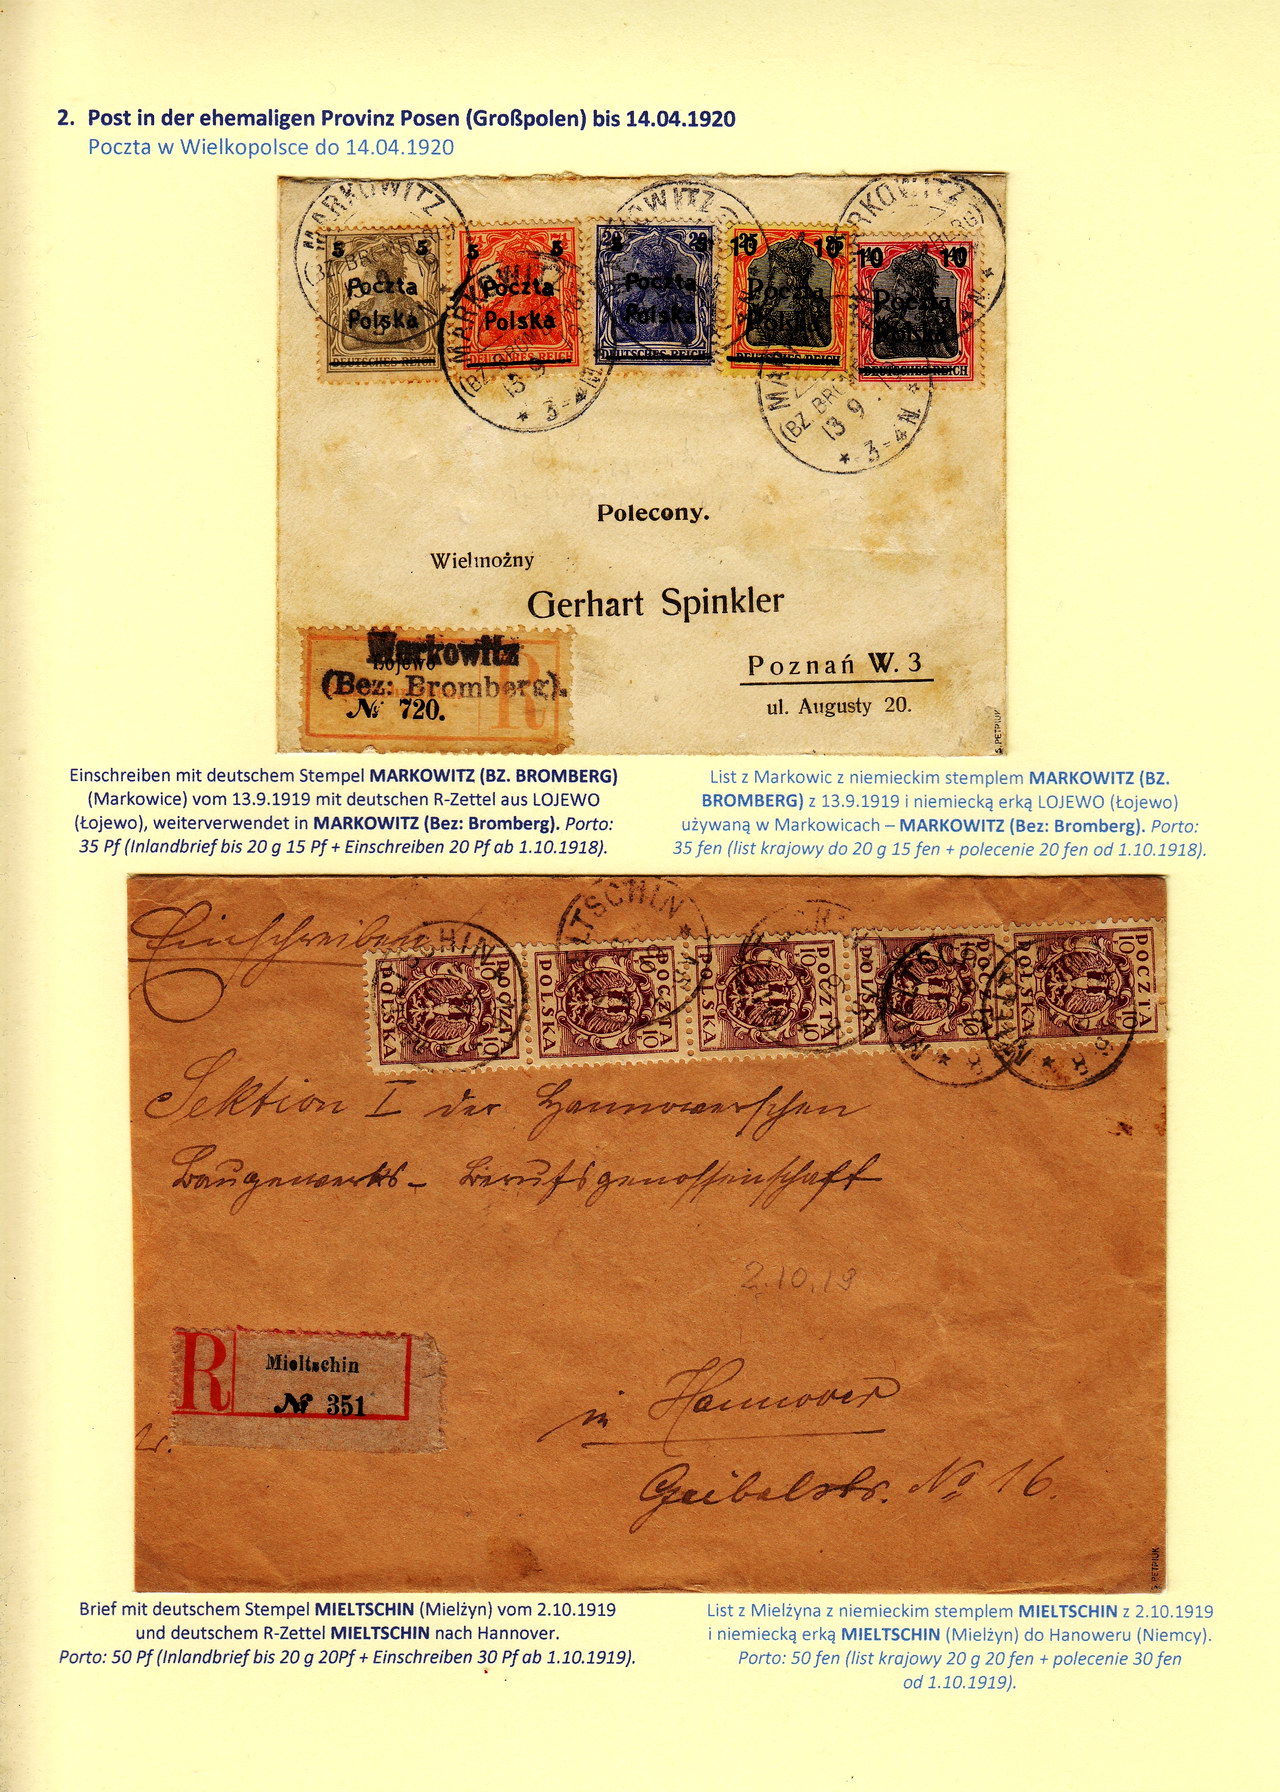 2. Post in der ehemaligen Provinz Posen (Großpolen) bis 14.04.1920
Poczta w Wielkopolsce do 14.04.1920
MARKOWITZ
5 5
Poczta
Polska
DEUTSCHES REICH
5
Poczta
Polska
DEUTSCHES REICH
MARKOWITZ
(BZ. BROMBERG)
13 9
3-4N
20 20
Poczta
Polska
DEUTSCHES REICH
10 10
Poczta
Polska
DEUTSCHES REICH
10 10
Poczta
Polska
DEUTSCHES REICH
(BZ. BROMBERG)
13 9
3-4N
Polecony.
Wielmożny
Gerhart Spinkler
Poznań W. 3
ul. Augusty 20.
Markowitz
Lojewo
(Bez: Bromberg).
R
№ 720.
S. PETRIUK
Einschreiben mit deutschem Stempel MARKOWITZ (BZ. BROMBERG)
(Markowice) vom 13.9.1919 mit deutschen R-Zettel aus LOJEWO
(Łojewo), weiterverwendet in MARKOWITZ (Bez: Bromberg). Porto:
35 Pf (Inlandbrief bis 20 g 15 Pf + Einschreiben 20 Pf ab 1.10.1918).
List z Markowic z niemieckim stemplem MARKOWITZ (BZ.
BROMBERG) z 13.9.1919 i niemiecką erką LOJEWO (Łojewo)
używaną w Markowicach – MARKOWITZ (Bez: Bromberg). Porto:
35 fen (list krajowy do 20 g 15 fen + polecenie 20 fen od 1.10.1918).
Einschreiben
POCZTA POLSKA 10
POCZTA POLSKA 10
POCZTA POLSKA 10
POCZTA POLSKA 10
POCZTA POLSKA 10
Sektion I der Hannoverschen
Baugewerks- Berufsgenossenschaft
2.10.19
R
Mieltschin
№ 351
in Hannover
Geibelstr. No 16.
S. PETRIUK
Brief mit deutschem Stempel MIELTSCHIN (Mielżyn) vom 2.10.1919
und deutschem R-Zettel MIELTSCHIN nach Hannover.
Porto: 50 Pf (Inlandbrief bis 20 g 20Pf + Einschreiben 30 Pf ab 1.10.1919).
List z Mielżyna z niemieckim stemplem MIELTSCHIN z 2.10.1919
i niemiecką erką MIELTSCHIN (Mielżyn) do Hanoweru (Niemcy).
Porto: 50 fen (list krajowy 20 g 20 fen + polecenie 30 fen
od 1.10.1919).